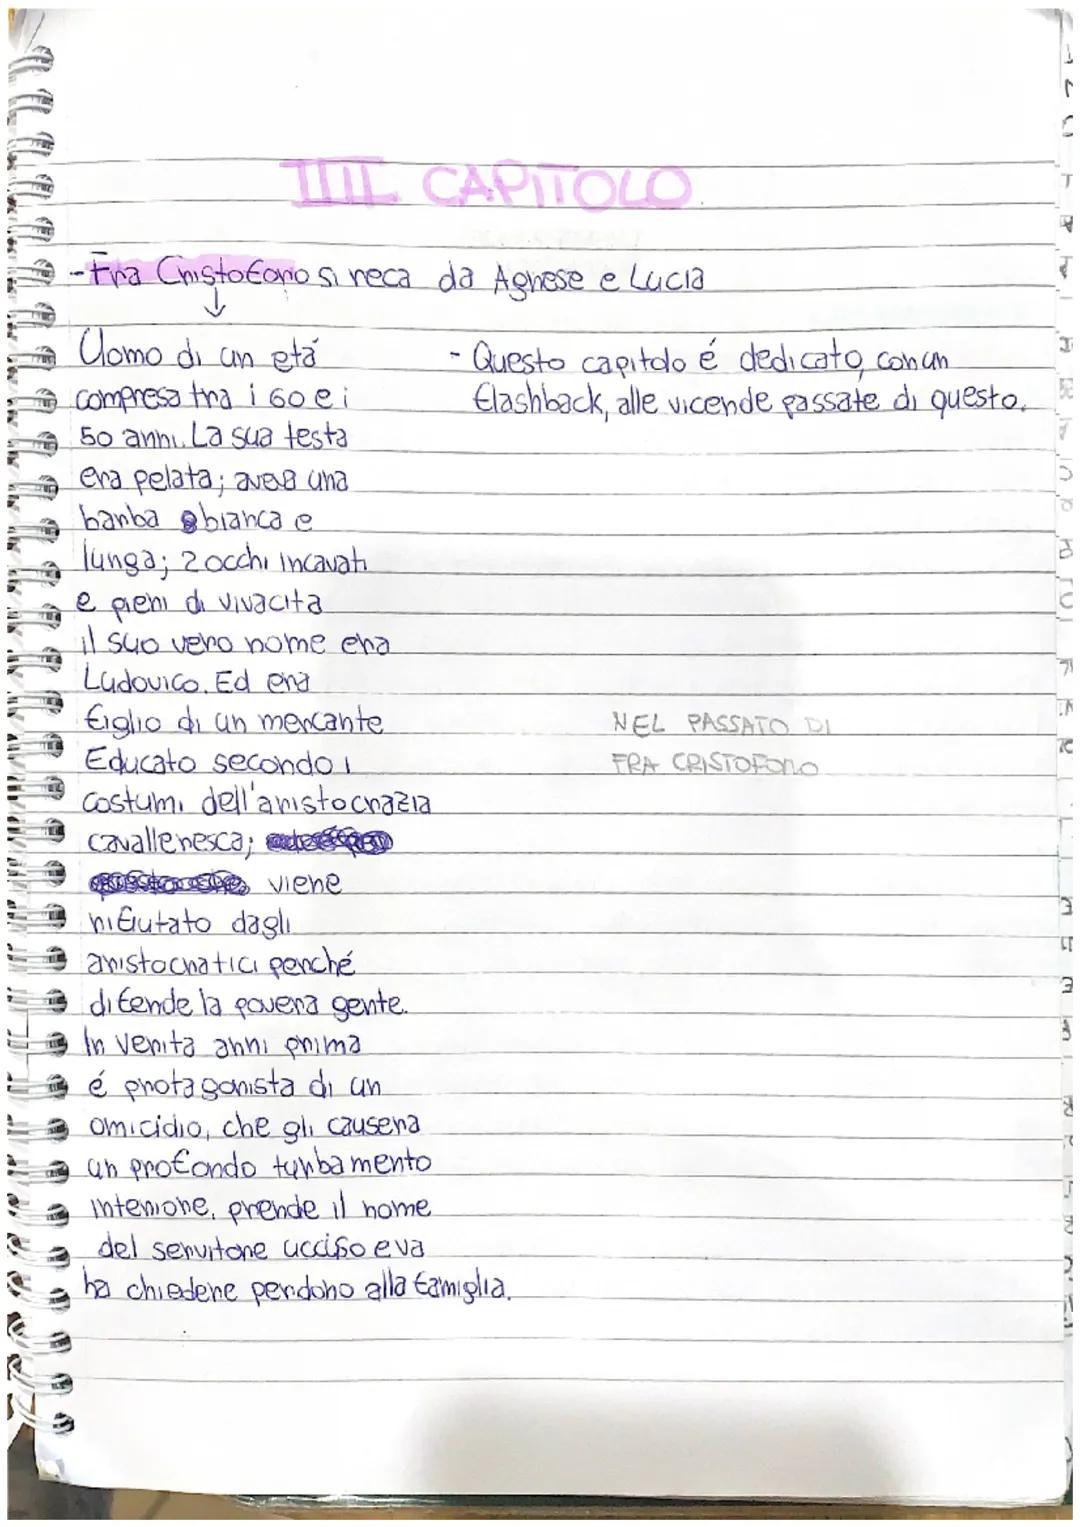 IIII CAPITOLO
-Fra Cristoforo si reca da Agnese e Lucia
↓
Uomo di un etá
compresa tra i 60 e i
50 anni. La sua testa
era pelata; aveva una
barba bianca e
lunga; 2 occhi incavati
e pieni di vivacita
il suo vero nome era
Ludovico. Ed era
figlio di un mercante
Educato secondo i
costumi dell'aristocrazia
cavalleresca;
viene
rifiutato dagli
aristocratici perché
difende la povera gente.
In verità anni prima
é protagonista di un
omicidio, che gli causera
un profondo turbamento
interiore, prende il nome
del servitore ucciso e va
ha chiedere perdono alla famiglia.
- Questo capitolo é dedicato, con un
flashback, alle vicende passate di questo.
NEL PASSATO DI
FRA CRISTOFORO